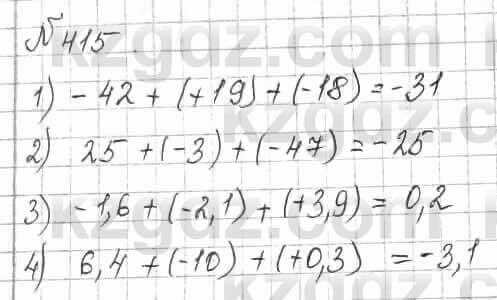 №415
1) -42 + (+19) + (-18) = -31
2) 25 + (-3) + (-47) = -25
3) -1,6 + (-2,1) + (+3,9) = 0,2
4) 6,4 + (-10) + (+0,3) = -3,1